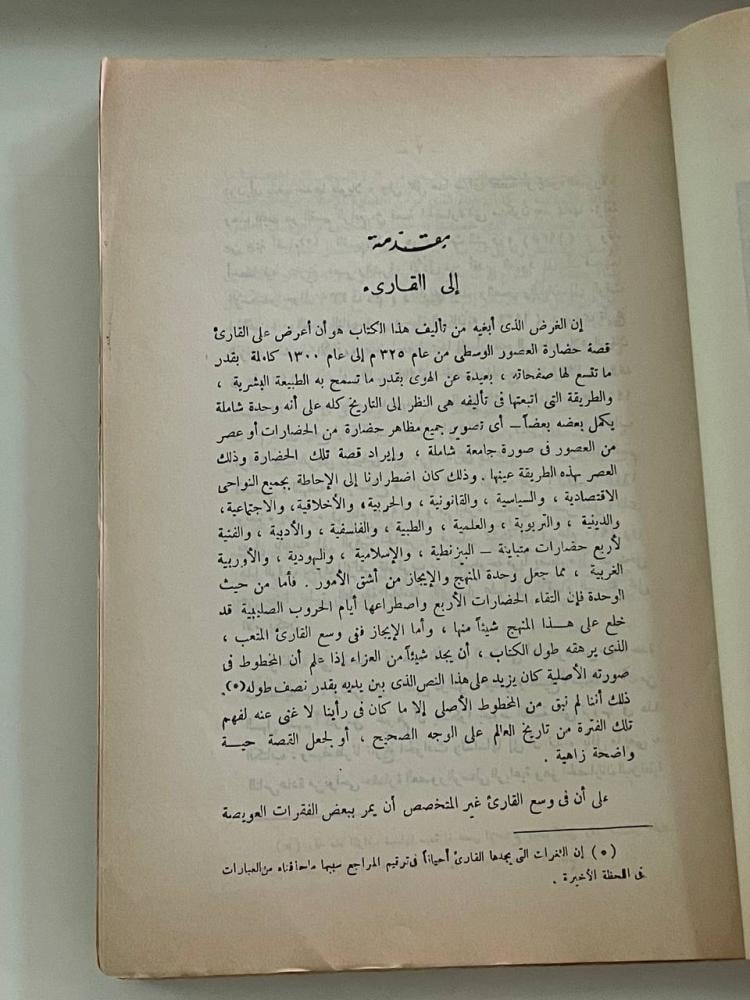 مقدمة
إلى القارىء
إن الغرض الذى أبغيه من تأليف هذا الكتاب هو أن أعرض على القارئ
قصة حضارة العصور الوسطى من عام ٣٢٥ م إلى عام ١٣٠٠ كاملة بقدر
ما تتسع لها صفحاته ، بعيدة عن الهوى بقدر ما تسمح به الطبيعة البشرية ،
والطريقة التى اتبعتها فى تأليفه هى النظر إلى التاريخ كله على أنه وحدة شاملة
يكمل بعضه بعضاً — أى تصوير جميع مظاهر حضارة من الحضارات أو عصر
من العصور فى صورة جامعة شاملة ، وإيراد قصة تلك الحضارة وذلك
العصر بهذه الطريقة عينها . وذلك كان اضطرارنا إلى الإحاطة بجميع النواحى
الاقتصادية ، والسياسية ، والقانونية ، والحربية ، والأخلاقية ، والاجتماعية ،
والدينية ، والتربوية ، والعلمية ، والطبية ، والفلسفية ، والأدبية ، والفنية
لأربع حضارات متباينة — البيزنطية ، والإسلامية ، واليهودية ، والأوربية
الغربية ، مما جعل وحدة المنهج والإيجاز من أشق الأمور . فأما من حيث
الوحدة فإن التقاء الحضارات الأربع واصطراعها أيام الحروب الصليبية قد
خلع على هــذا المنهج شيئاً منها ، وأما الإيجاز ففى وسع القارئ المتعب ،
الذى يرهقه طول الكتاب ، أن يجد شيئاً من العزاء إذا علم أن المخطوط فى
صورته الأصلية كان يزيد على هذا النص الذى بين يديه بقدر نصف طوله (*) .
ذلك أننا لم نبق من المخطوط الأصلى إلا ما كان فى رأينا لا غنى عنه لفهم
تلك الفترة من تاريخ العالم على الوجه الصحيح ، أو لجعل القصة حيــة
واضحة زاهية .
على أن فى وسع القارئ غير المتخصص أن يمر ببعض الفقرات العويصة
(*) إن الثغرات التى يجدها القارئ أحياناً فى ترقيم المراجع سببها ما حذفناه من العبارات
فى اللحظة الأخيرة .